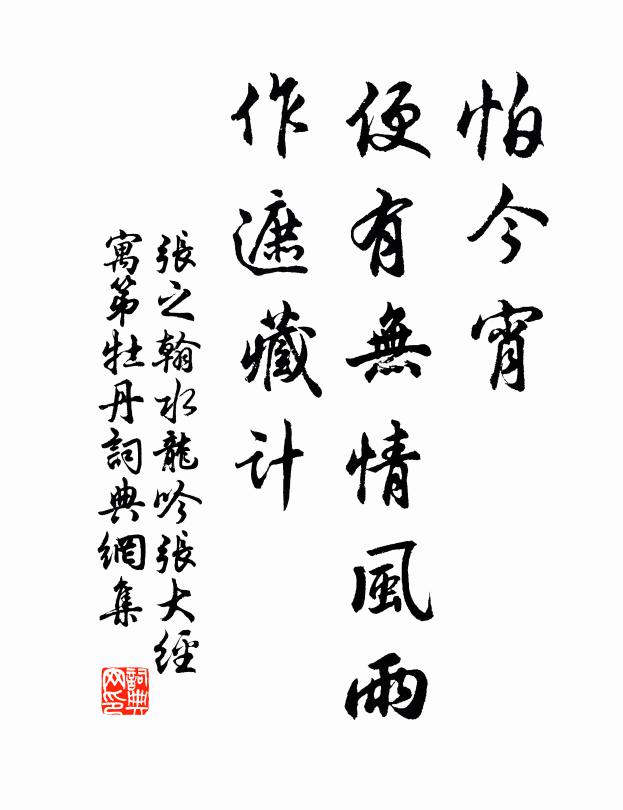 怕今宵
便有無情風雨
作遮藏计
張之翰水龍吟張大經
寓第牡丹詞典網集
詞典網印